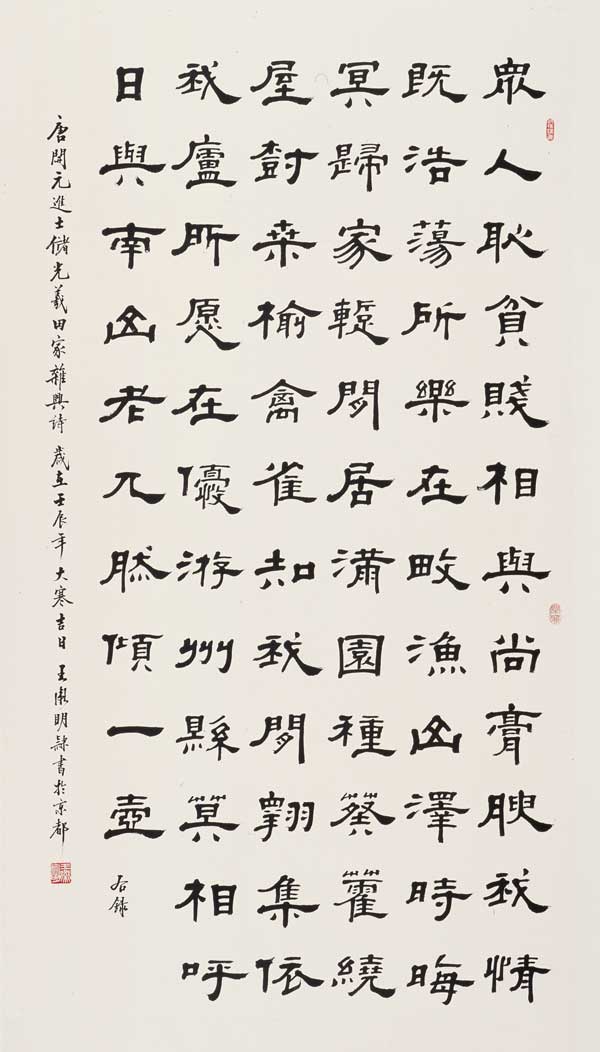 眾人恥貧賤相與尚膏腴我情
既浩蕩所樂在畋漁山澤時晦
冥歸家暫閒居滿園種葵藿繞
屋樹桑榆禽雀知我閒翔集依
我廬所愿在優游州縣莫相呼
日與南山老兀然傾一壺 右錄
唐開元進士儲光羲田家雜興詩 歲在壬辰年大寒吉日 王明隸書於京都